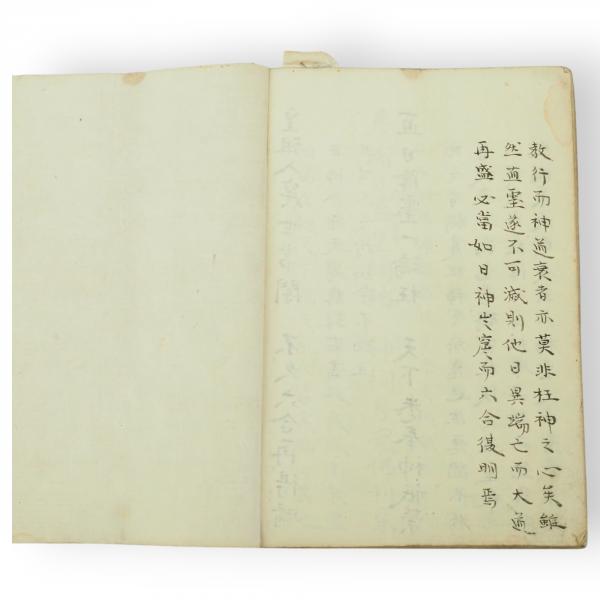 教行而神道衰者亦莫非枉神之心矣雖
然直霊遂不可滅則他日異端亡而大道
再盛必當如日神出窟而六合復明焉